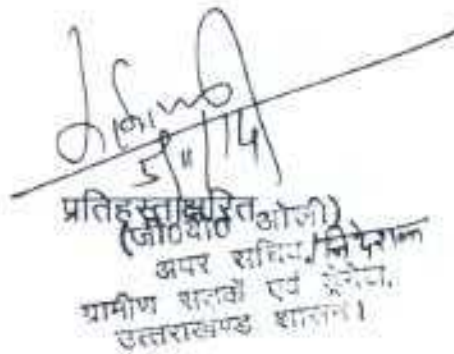 5/11/14
प्रतिहस्ताक्षरित
(जी०बी० ओली)
अपर सचिव/निदेशक
ग्रामीण सड़कें एवं ड्रेनेज,
उत्तराखण्ड शासन।